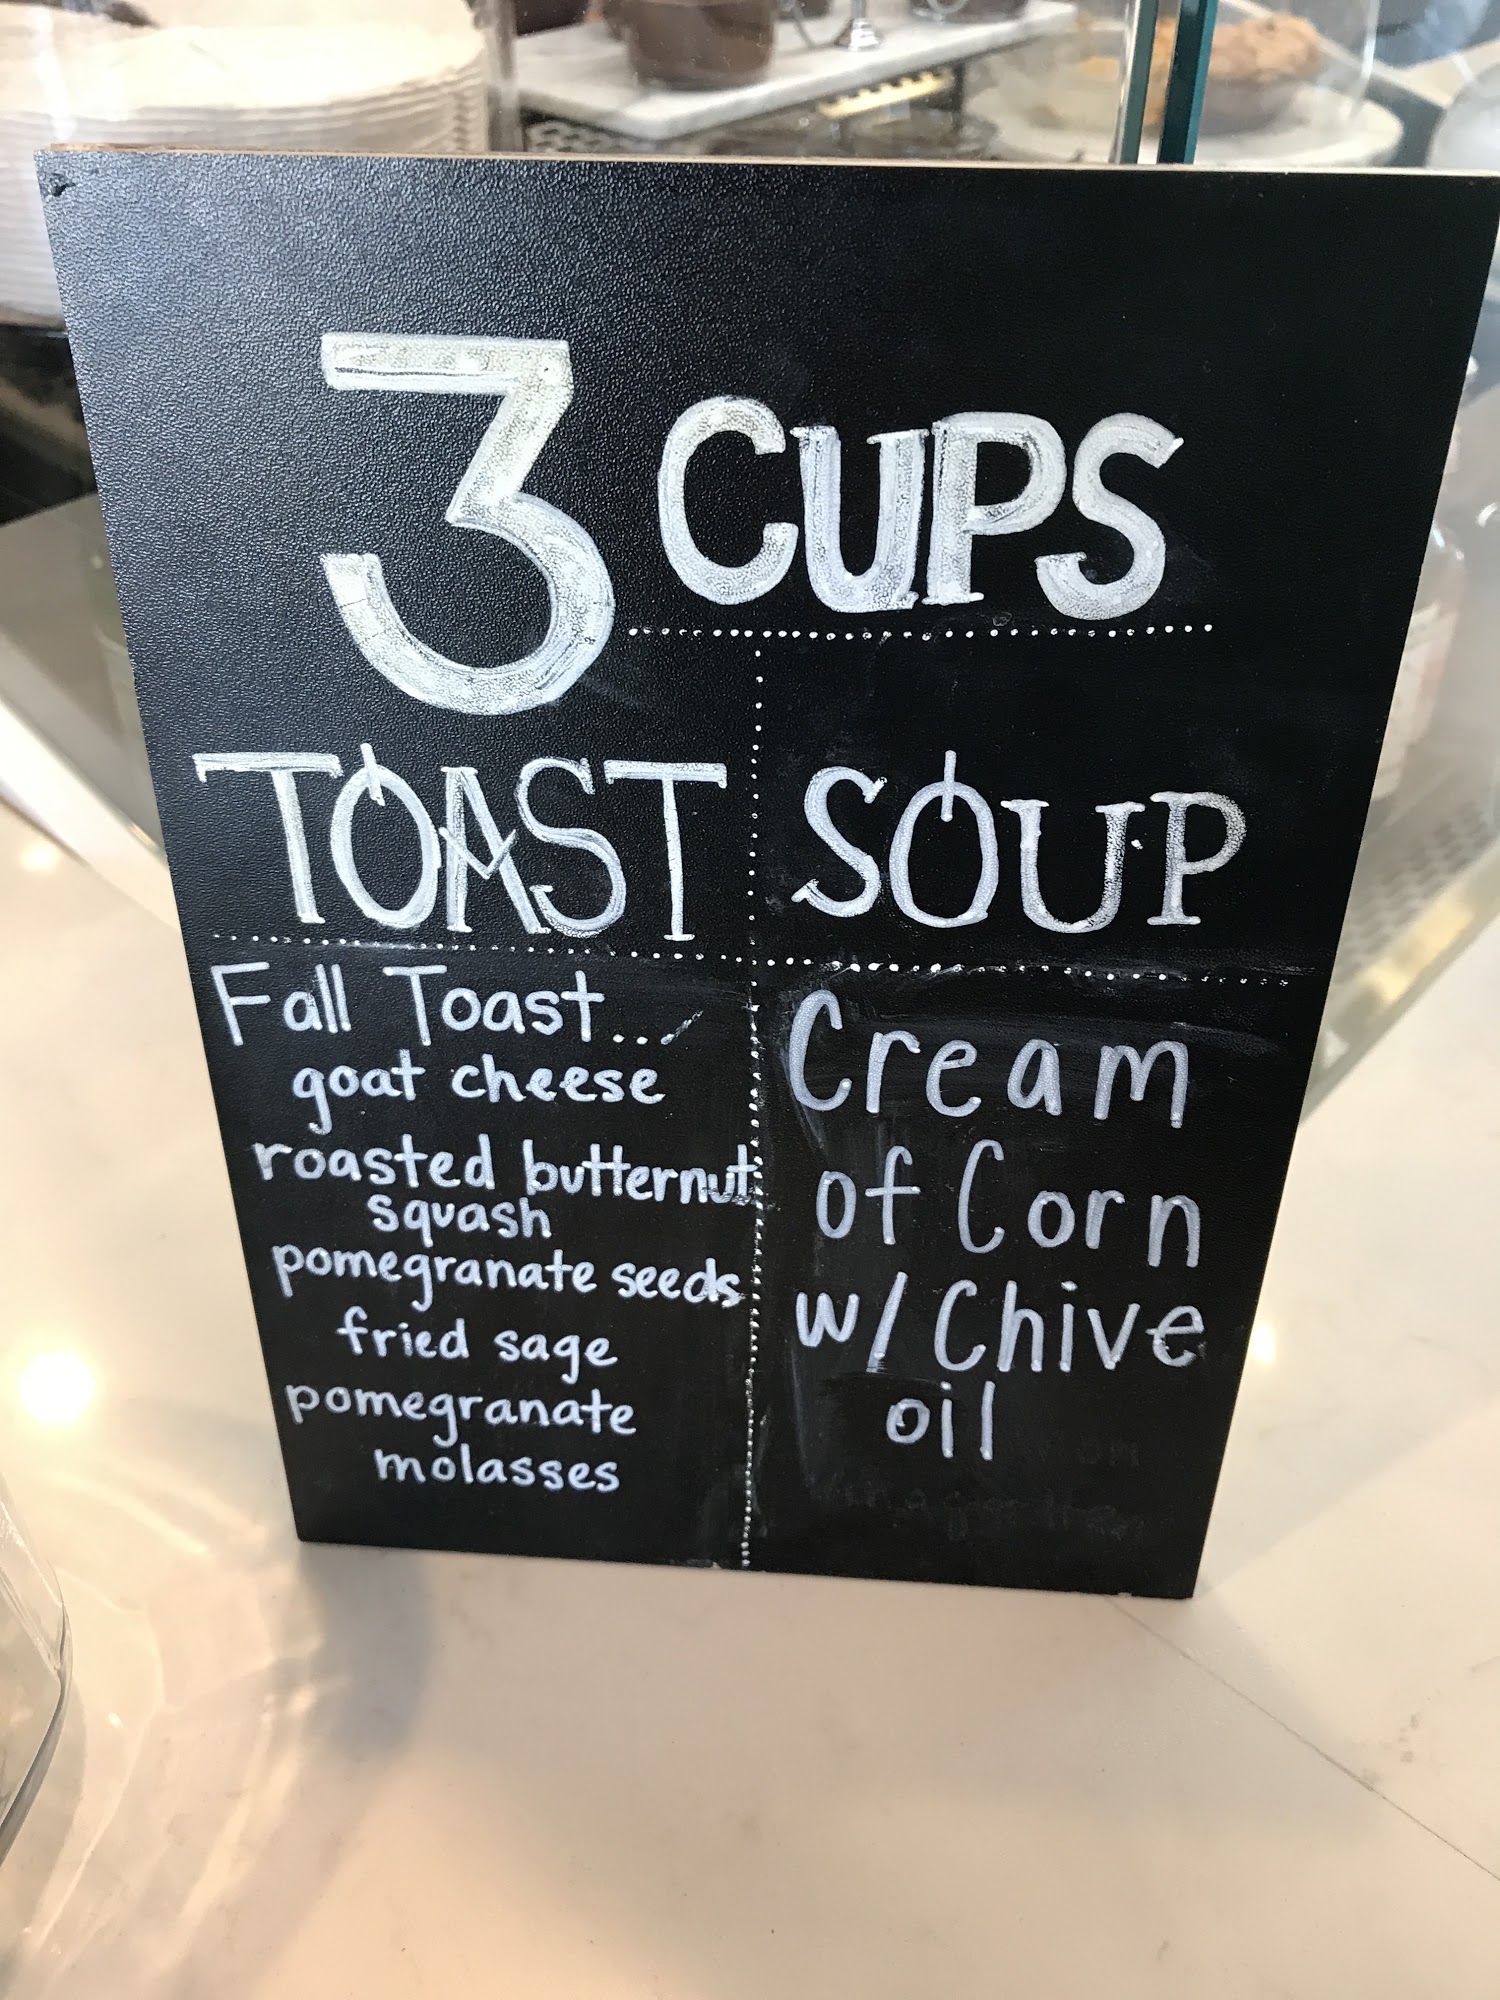 3 CUPS
TOAST
Fall Toast...
goat cheese
roasted butternut
squash
pomegranate seeds
fried sage
pomegranate
molasses
SOUP
Cream
of Corn
w/ Chive
oil